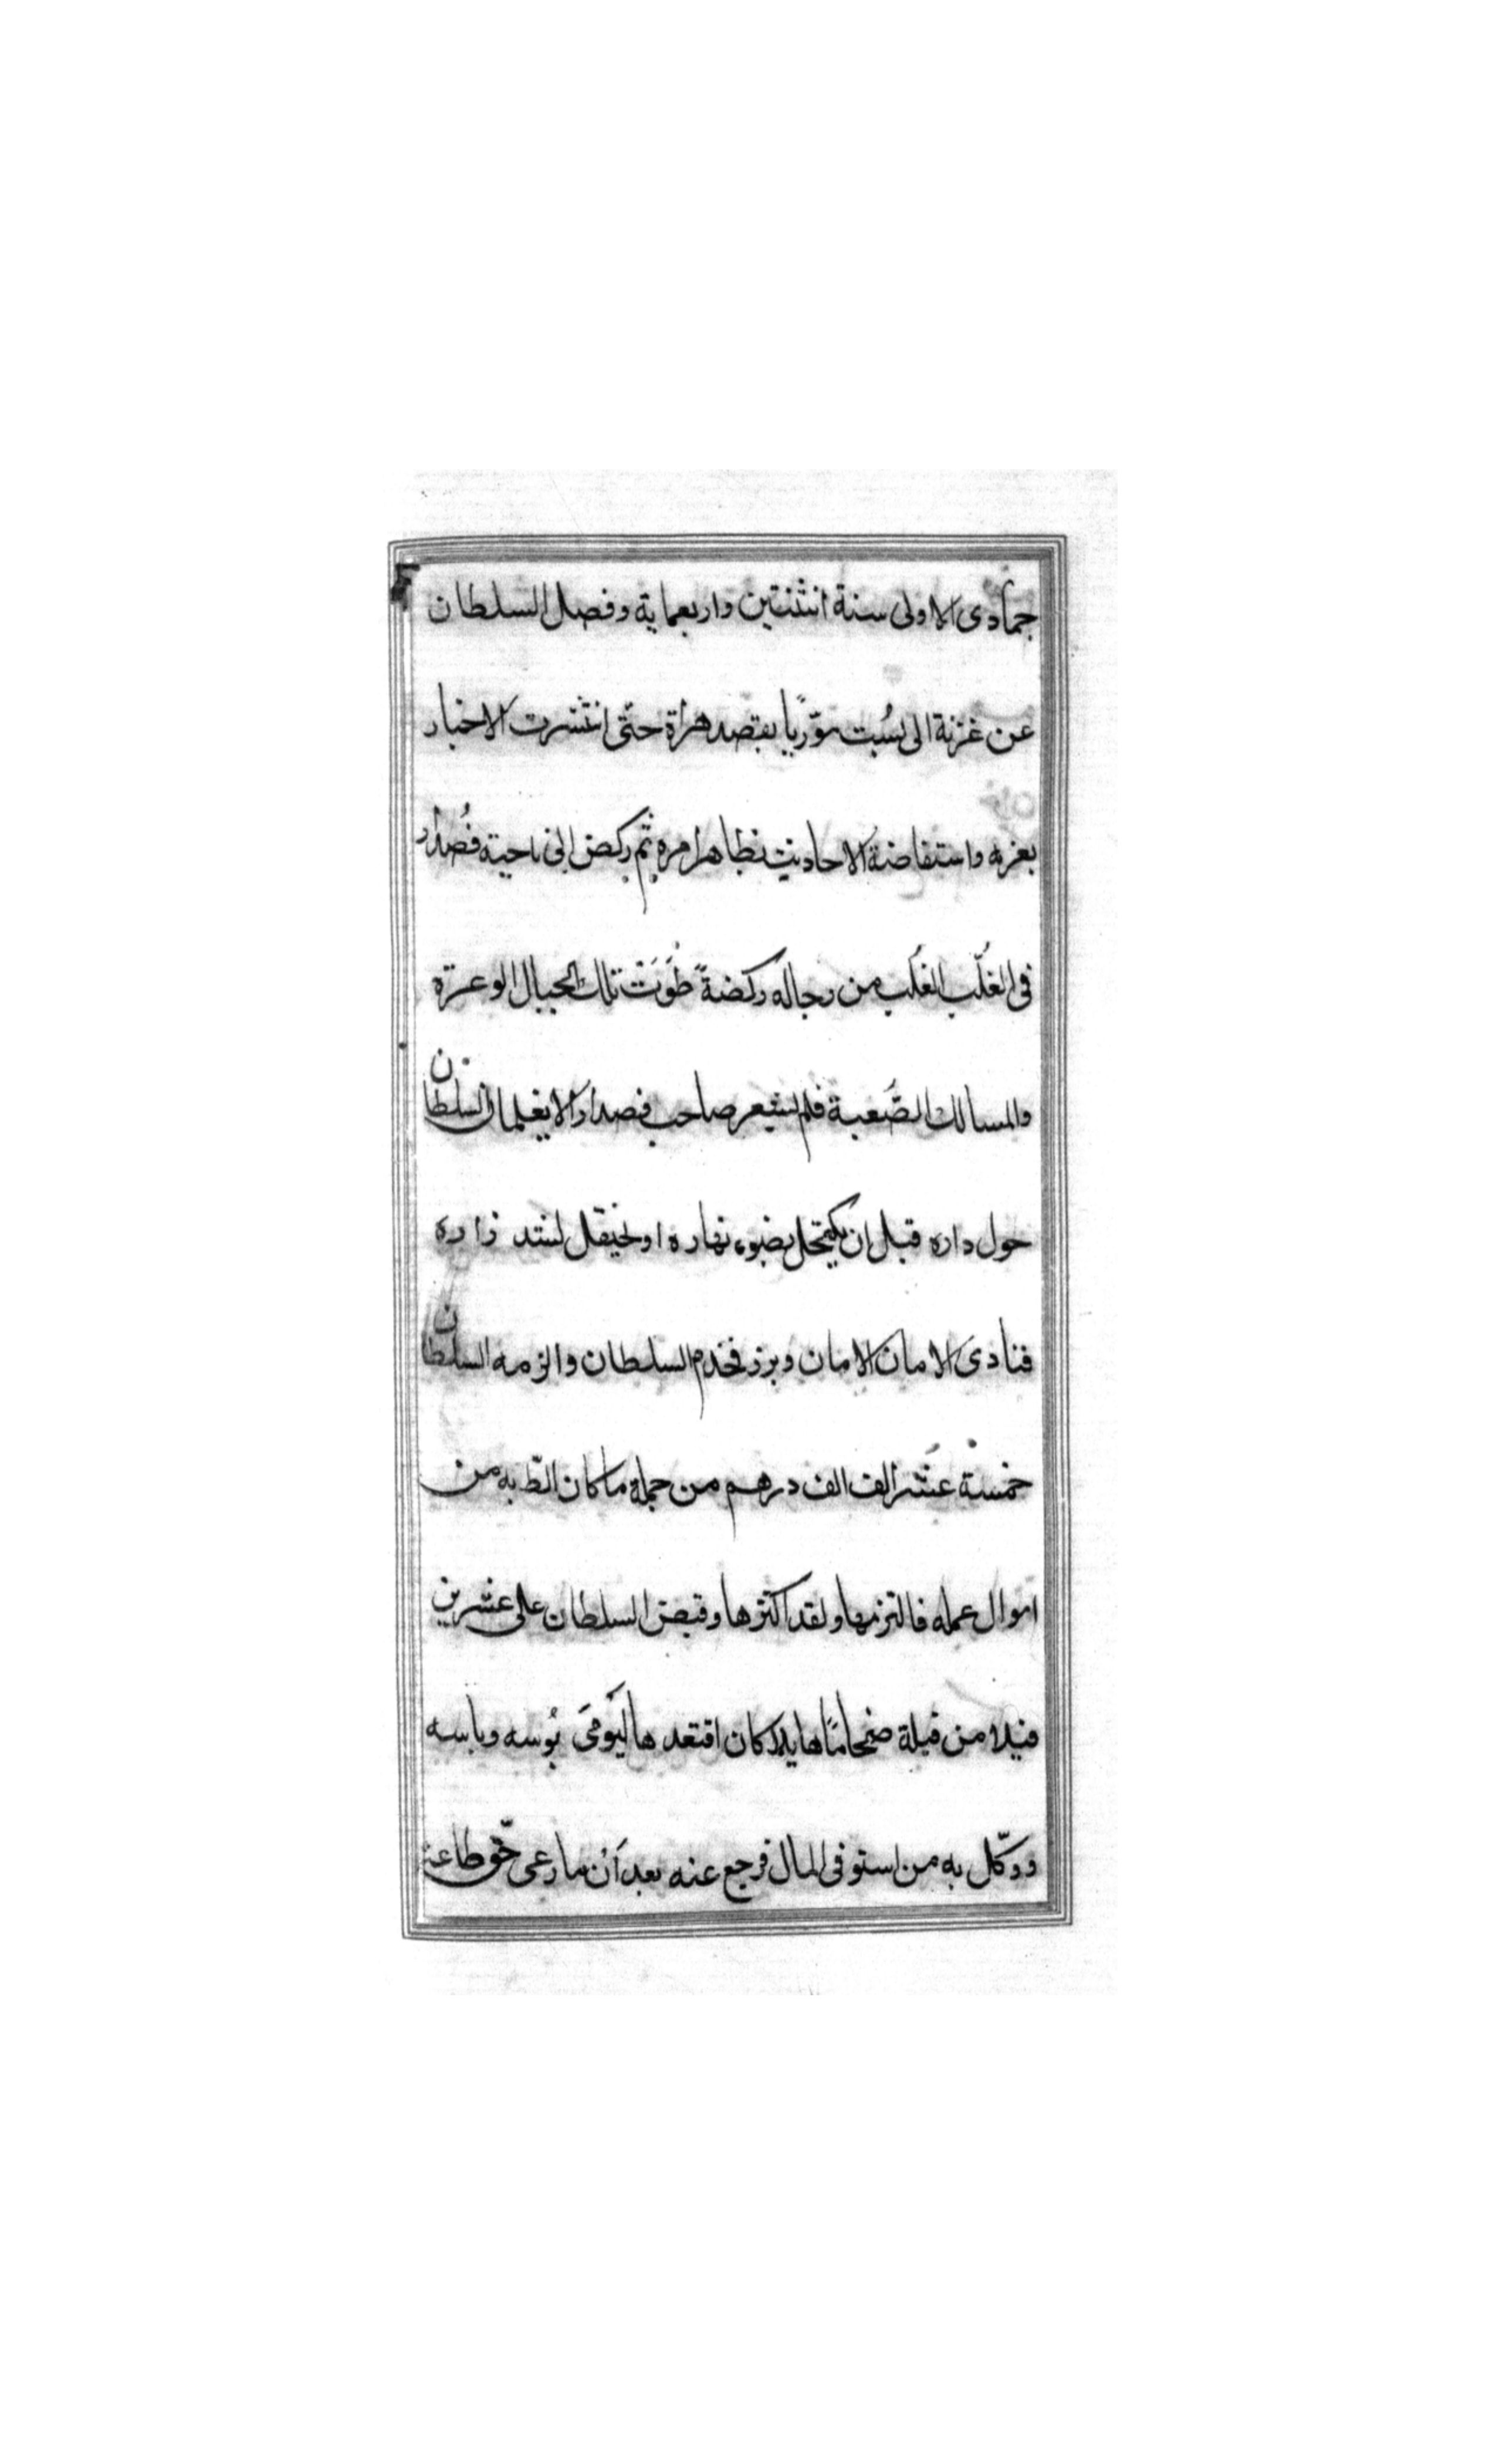 جمادى الاولى سنة اثنتين واربعماية وفصل السلطان
عن غزنة الى بُست مورّيًا بقصد هراة حتّى انتشرت الاخبار
بعزمه واستفاضة الاحاديث بظاهر امره ثم ركض الى ناحية قُصدار
فى الغُلّب الغُلب من رجاله ركضةً طَوَتْ تلك الجبال الوعرة
والمسالك الصَّعبة فلم يشعر صاحب قصدار الا بغلمان السلطان
حول داره قبل ان يكتحل بضوء نهاره او يحتفل لشد زاره
فنادى الامان الامان وبرز فخدم السلطان والزمه السلطان
خمسة عشر الف الف درهم من جملة ما كان الطّ به من
اموال عمله فالتزمها ونقد اكثرها وقبض السلطان على عشرين
فيلا من فيلة ضخامًا هايلة كان اقتعدها ليَومَى بُوسه وباسه
ووكّل به من استوفى المال فرجع عنه بعد أن راعى حقّ طاعته